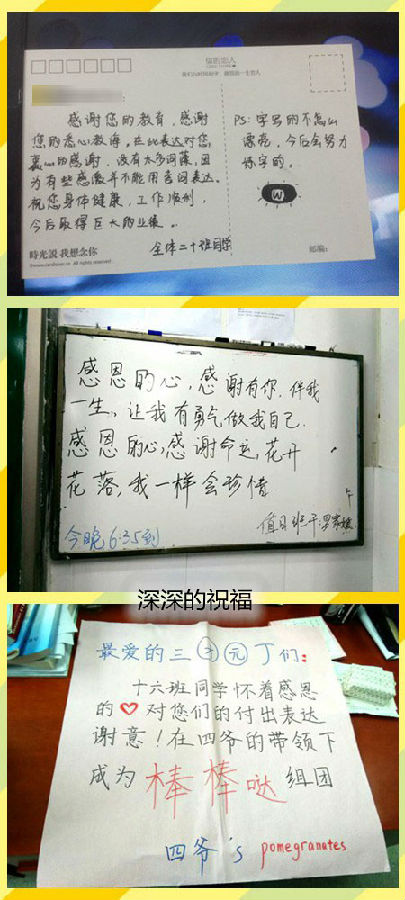 感谢您的教育,感谢
您的悉心教诲。在此表达对您
衷心的感谢,没有太多词藻,因
为有些感激并不能用言词表达。
祝您身体健康,工作顺利,
今后取得巨大的业绩。
全体二十班同学
PS:字写的不怎么
漂亮,今后会努力
练字的。
時光說 我想念你
邮编:
感恩的心,感谢有你,伴我
一生,让我有勇气做我自己.
感恩的心,感谢命运,花开
花落,我一样会珍惜
值日班干:
今晚6:35到
深深的祝福
最爱的三 元丁们:
十六班同学怀着感恩
的❤对您们的付出表达
谢意!在四爷的带领下
成为棒棒哒组团
四爷's pomegranates